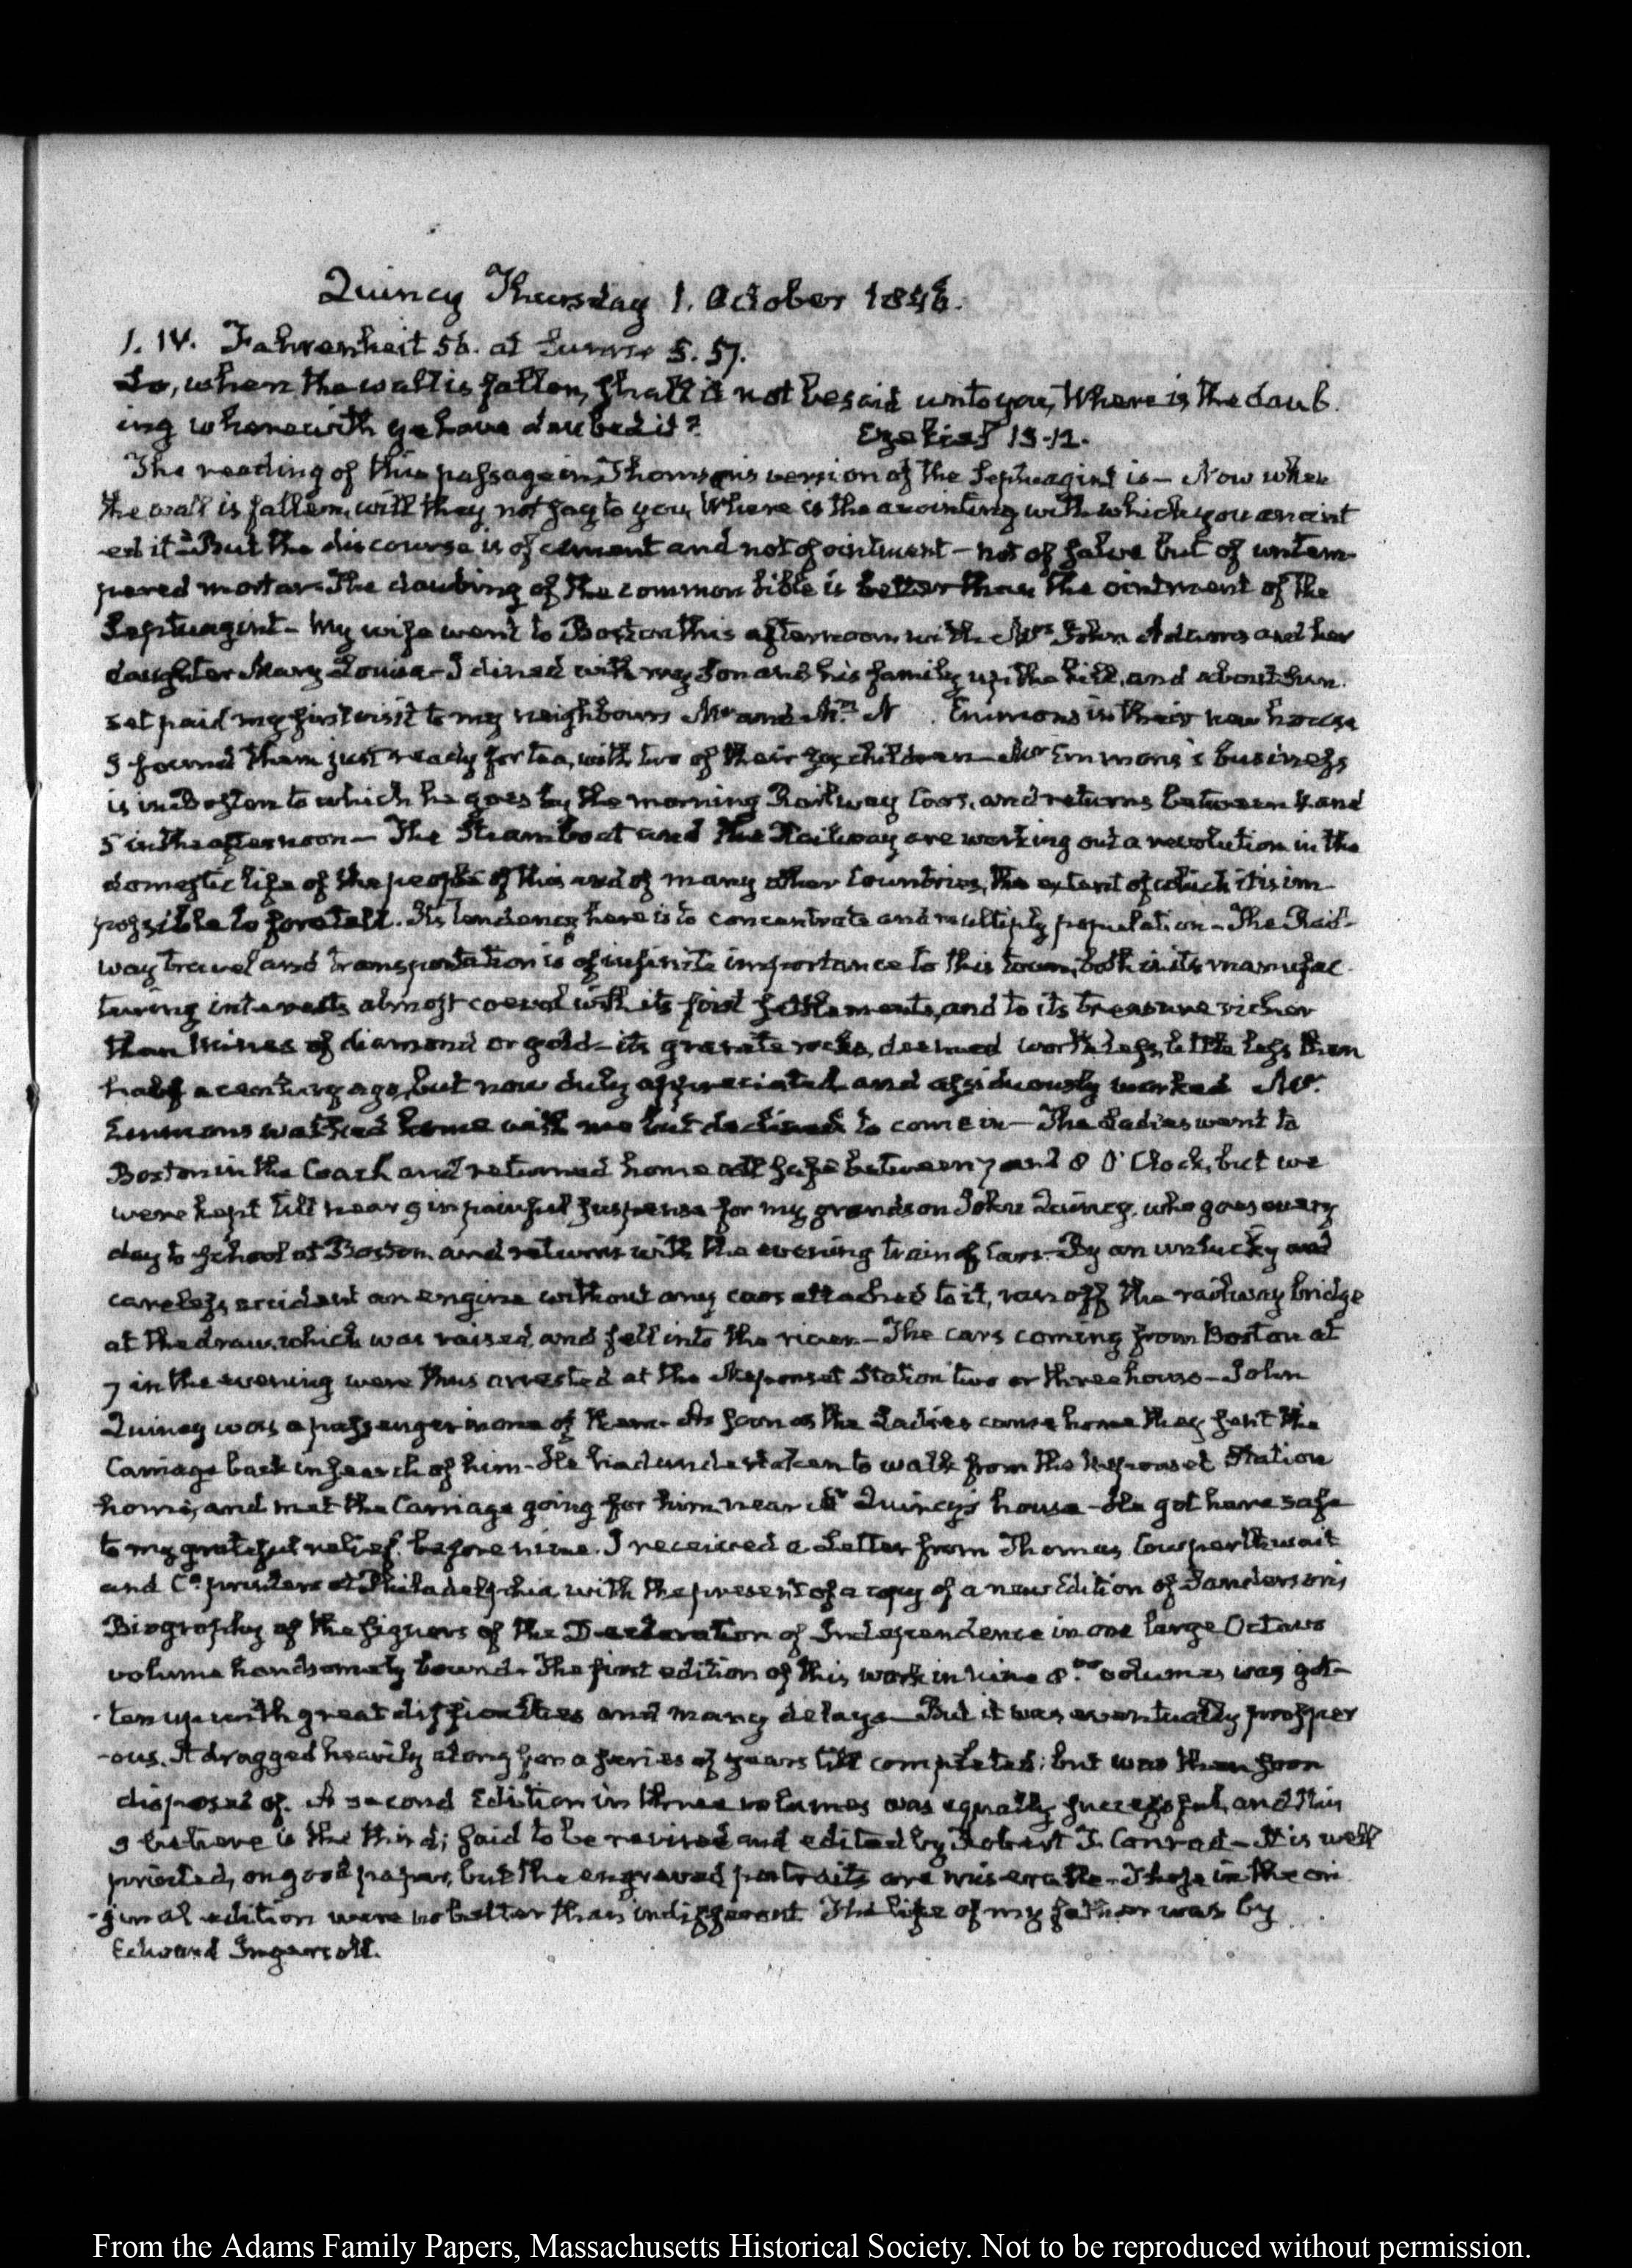 Quincy Thursday 1. October 1846.
1. IV. Fahrenheit 56. at Sunrise 5. 57.
Lo, when the wall is fallen, shall it not be said unto you, Where is the daub
ing wherewith ye have daubed it? Ezekiel 13-12.
The reading of this passage in Thomson's version of the Septuagint is — Now when
the wall is fallen, will they not say to you, Where is the anointing with which you anoint
-ed it — But the discourse is of cement and not of ointment — not of salve but of untem-
pered mortar. The daubing of the common bible is better than the ointment of the
Septuagint — My wife went to Boston this afternoon with Mrs John Adams and her
daughter Mary Louisa — I dined with my Son and his family up the hill, and about Sun.
set paid my first visit to my neighbours Mr and Mrs N . Emmons in their new house
I found them just ready for tea, with two of their children — Mr Emmons's business
is in Boston to which he goes by the morning Railway Cars, and returns between 4 and
5 in the afternoon — The Steamboat and the Railway are working out a revolution in the
domestic life of the people of this and of many other Countries, the extent of which it is im-
possible to foretell. Its tendency here is to concentrate and multiply population — The Rail-
way travel and transportation is of infinite importance to this town, both in its manufac-
turing interests almost coeval with its first settlements, and to its treasure richer
than Mines of diamond or gold — its granite rocks, deemed worthless, little less than
half a century ago, but now duly appreciated and assiduously worked Mr.
Emmons walked home with me but declined to come in — The Ladies went to
Boston in the Coach and returned home all safe between 7 and 8 O'Clock, but we
were kept till near 9 in painful suspense for my grandson John Quincy, who goes every
day to School at Boston and returns with the evening train of Cars. By an unlucky and
careless accident an engine without any cars attached to it, ran off the railway bridge
at the draw, which was raised, and fell into the river — The cars coming from Boston at
7 in the evening were thus arrested at the Neponset Station two or three hours — John
Quincy was a passenger in one of them. As soon as the Ladies came home they sent the
Carriage back in search of him — He had undertaken to walk from the Neponset Station
home, and met the Carriage going for him near Mr Quincy's house — He got here safe
to my grateful relief before nine. I received a Letter from Thomas Cowperthwait
and Co. printers at Philadelphia with the present of a copy of a new Edition of Sanderson's
Biography of the Signers of the Declaration of Independence in one large Octavo
volume handsomely bound. The first edition of this work in nine 8.vo volumes was got-
ten up with great difficulties and many delays — But it was eventually prosper
-ous. It dragged heavily along for a series of years till completed; but was then soon
disposed of. A second Edition in three volumes was equally successful, and this
I believe is the third; said to be revised and edited by Robert T. Conrad — It is well
printed, on good paper, but the engraved portraits are miserable — Those in the ori
-ginal edition were no better than indifferent. The life of my father was by
Edward Ingersoll.
From the Adams Family Papers, Massachusetts Historical Society. Not to be reproduced without permission.